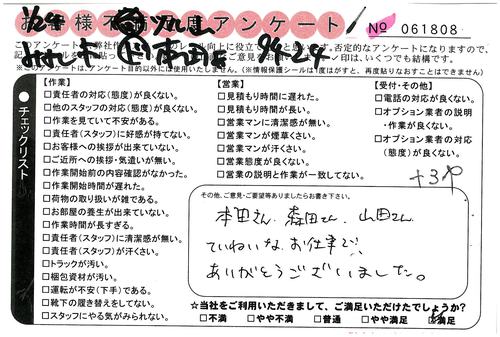 お客様不満度アンケート
№ 061808
【作業】
□責任者の対応(態度)が良くない。
□他のスタッフの対応(態度)が良くない。
□作業を見ていて不安がある。
□責任者(スタッフ)に好感が持てない。
□お客様への挨拶が出来ていない。
□ご近所への挨拶・気遣いが無い。
□作業開始前の内容確認がなかった。
□作業開始時間が遅れた。
□荷物の取り扱いが雑である。
□お部屋の養生が出来ていない。
□作業時間が長すぎる。
□責任者(スタッフ)に清潔感が無い。
□責任者(スタッフ)が汗くさい。
□トラックが汚い。
□梱包資材が汚い。
□運転が不安(下手)である。
□靴下の履き替えをしてない。
□スタッフにやる気がみられない。
【営業】
□見積もり時間に遅れた。
□見積もり時間が長い。
□営業マンに清潔感が無い。
□営業マンが煙草くさい。
□営業マンが汗くさい。
□営業態度が良くない。
□営業の説明と作業が一致してない。
【受付・その他】
□電話の対応が良くない。
□オプション業者の説明
・作業が良くない。
□オプション業者の対応
(態度)が良くない。
●チェックリスト
その他、ご意見・ご要望等ありましたらお書き下さい。
本田さん、森田さん、山田さん
ていねいなお仕事で、
ありがとうございました。
☆当社をご利用いただきまして、ご満足いただけたでしょうか?
□不満 □やや不満 □普通 □やや満足 □満足